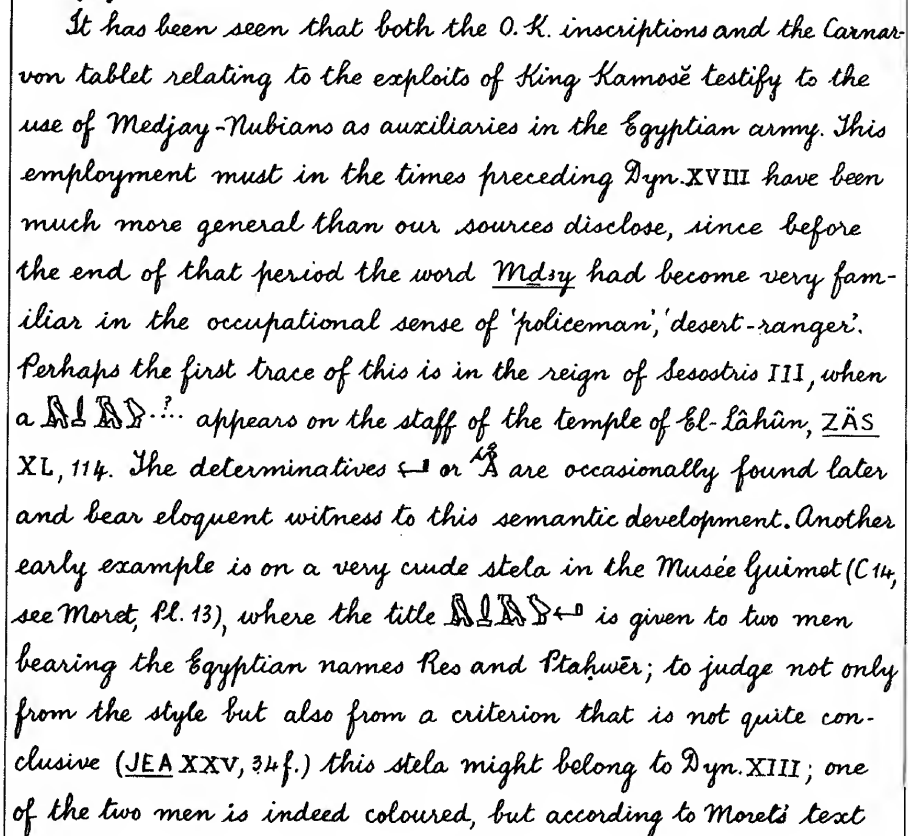 It has been seen that both the O.K. inscriptions and the Carnar-
von tablet relating to the exploits of King Kamosĕ testify to the
use of Medjay-Nubians as auxiliaries in the Egyptian army. This
employment must in the times preceding Dyn. XVIII have been
much more general than our sources disclose, since before
the end of that period the word Mḏꜣy had become very fam-
iliar in the occupational sense of 'policeman', 'desert-ranger'.
Perhaps the first trace of this is in the reign of Sesostris III, when
a ..?.. appears on the staff of the temple of El-Lâhûn, ZÄS
XL, 114. The determinatives or are occasionally found later
and bear eloquent witness to this semantic development. Another
early example is on a very crude stela in the Musée Guimet (C 14,
see Moret, Pl. 13), where the title is given to two men
bearing the Egyptian names Res and Ptaḥwēr; to judge not only
from the style but also from a criterion that is not quite con-
clusive (JEA XXV, 34 f.) this stela might belong to Dyn. XIII; one
of the two men is indeed coloured, but according to Moret's text